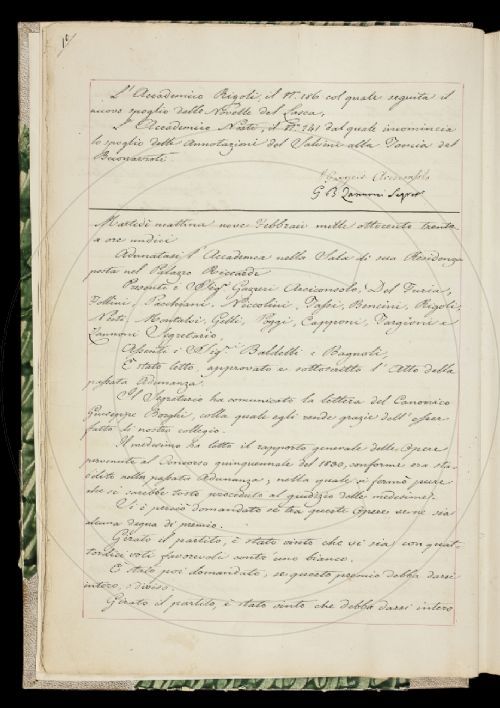 L'Accademico Rigoli, il N.° 186 col quale seguita il
nuovo spoglio delle Novelle del Lasca,
L'Accademico Nesti, il N.° 241 dal quale incomincia
lo spoglio delle Annotazioni del Salvini alla Fancia del
Buonarroti
Arciconsolo
G B Zannoni Segret.
Martedì mattina nove Febbraio mille ottocento trenta
a ore undici
Adunatasi l'Accademia nella Sala di sua Residenza
posta nel Palazzo Riccardi
Presenti i Sig.ri Gazzeri Arciconsolo, Del Furia,
Follini, Niccolini, Tassi, Bencini, Rigoli,
Nesti, Montalvi, Gelli, Poggi, Capponi, Targioni e
Zannoni Segretario,
Assenti i Sig.ri Baldelli e Bagnoli,
È stato letto, approvato e sottoscritto l'Atto della
passata Adunanza.
Il Segretario ha comunicato la lettera del Canonico
Giuseppe Borghi, colla quale egli rende grazie dell'esser
fatto di nostro collegio.
Il medesimo ha letto il rapporto generale delle Opere
pervenute al Concorso quinquennale del 1830, conforme era sta-
bilito nella passata Adunanza, nella quale si fermò pure
che si sarebbe tosto proceduto al giudizio delle medesime.
Si è perciò domandato se tra queste Opere ve ne sia
alcuna degna di premio.
Girato il partito, è stato vinto che vi sia con quat-
tordici voti favorevoli contr'uno bianco.
È stato poi domandato, se questo premio debba darsi
intero, o diviso.
Girato il partito, è stato vinto che debba darsi intero